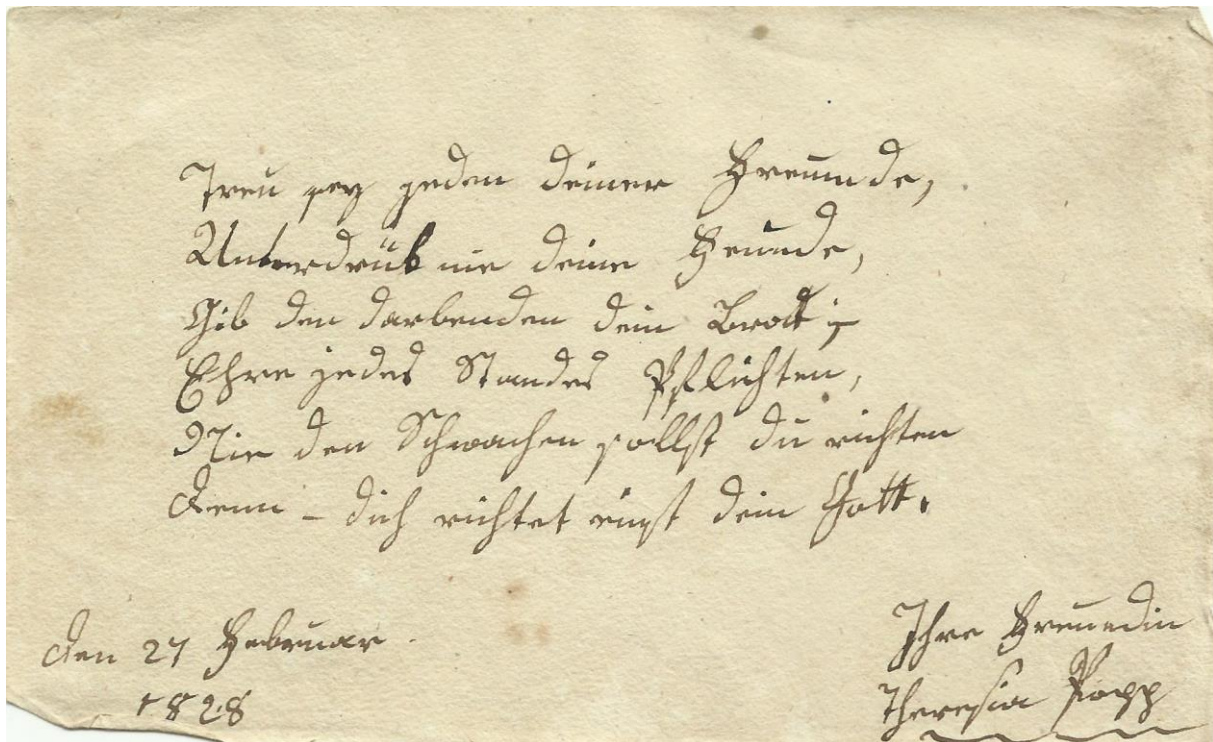 Treu sey jeden deiner Freunde,
Unterdrük nie deine Feinde,
Gib den darbenden dein Brott;
Ehre jedes Standes Pflichten,
Nie den Schwachen sollst du richten
denn – dich richtet einst dein Gott.
den 27 Februar
1828
Ihre Freundin
Theresia Popp